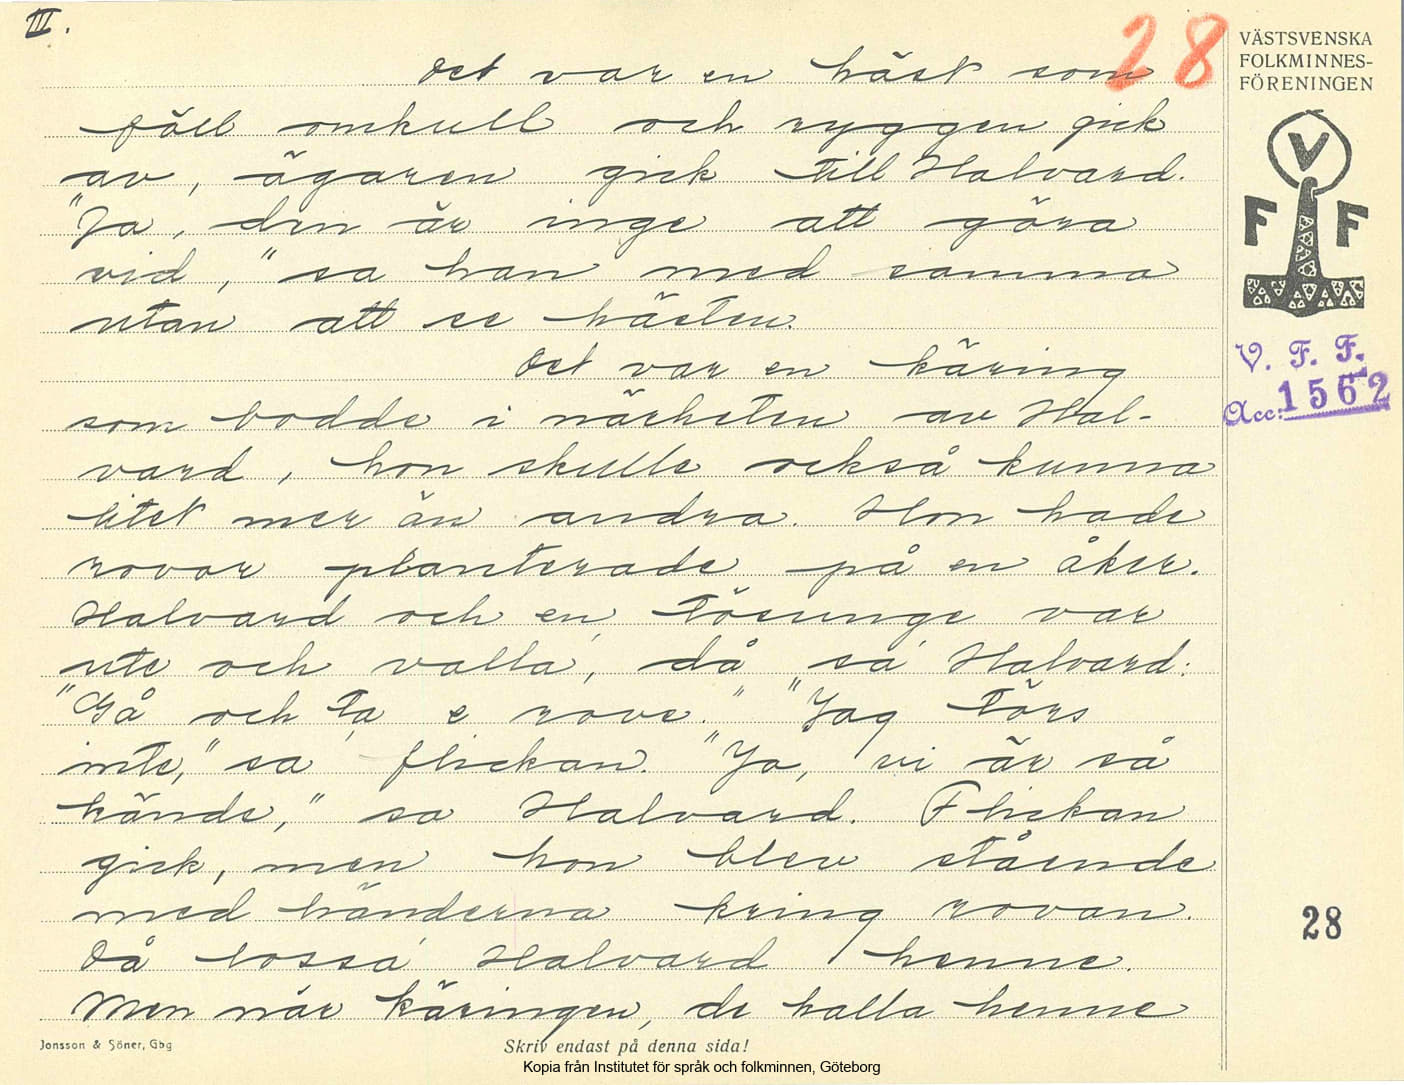 III.
28
VÄSTSVENSKA
FOLKMINNES-
FÖRENINGEN
V
F F
V. F. F.
Acc: 1562
Det var en häst som
föll omkull och ryggen gick
av, ägaren gick till Halvard.
"Ja, den är inge att göra
vid," sa han med samma
utan att se hästen.
Det var en käring
som bodde i närheten av Hal-
vard, hon skulle också kunna
litet mer än andra. Hon hade
rovor planterade på en åker.
Halvard och en tösunge var
ute och valla, då sa Halvard:
"Gå och ta e rove." "Jag törs
inte," sa flickan. "Jo, vi är så
kände," sa Halvard. Flickan
gick, men hon blev stående
med händerna kring rovan.
Då lossa Halvard henne.
Men når käringen, de kalla henne
28
Jonsson & Söner, Gbg
Skriv endast på denna sida!
Kopia från Institutet för språk och folkminnen, Göteborg